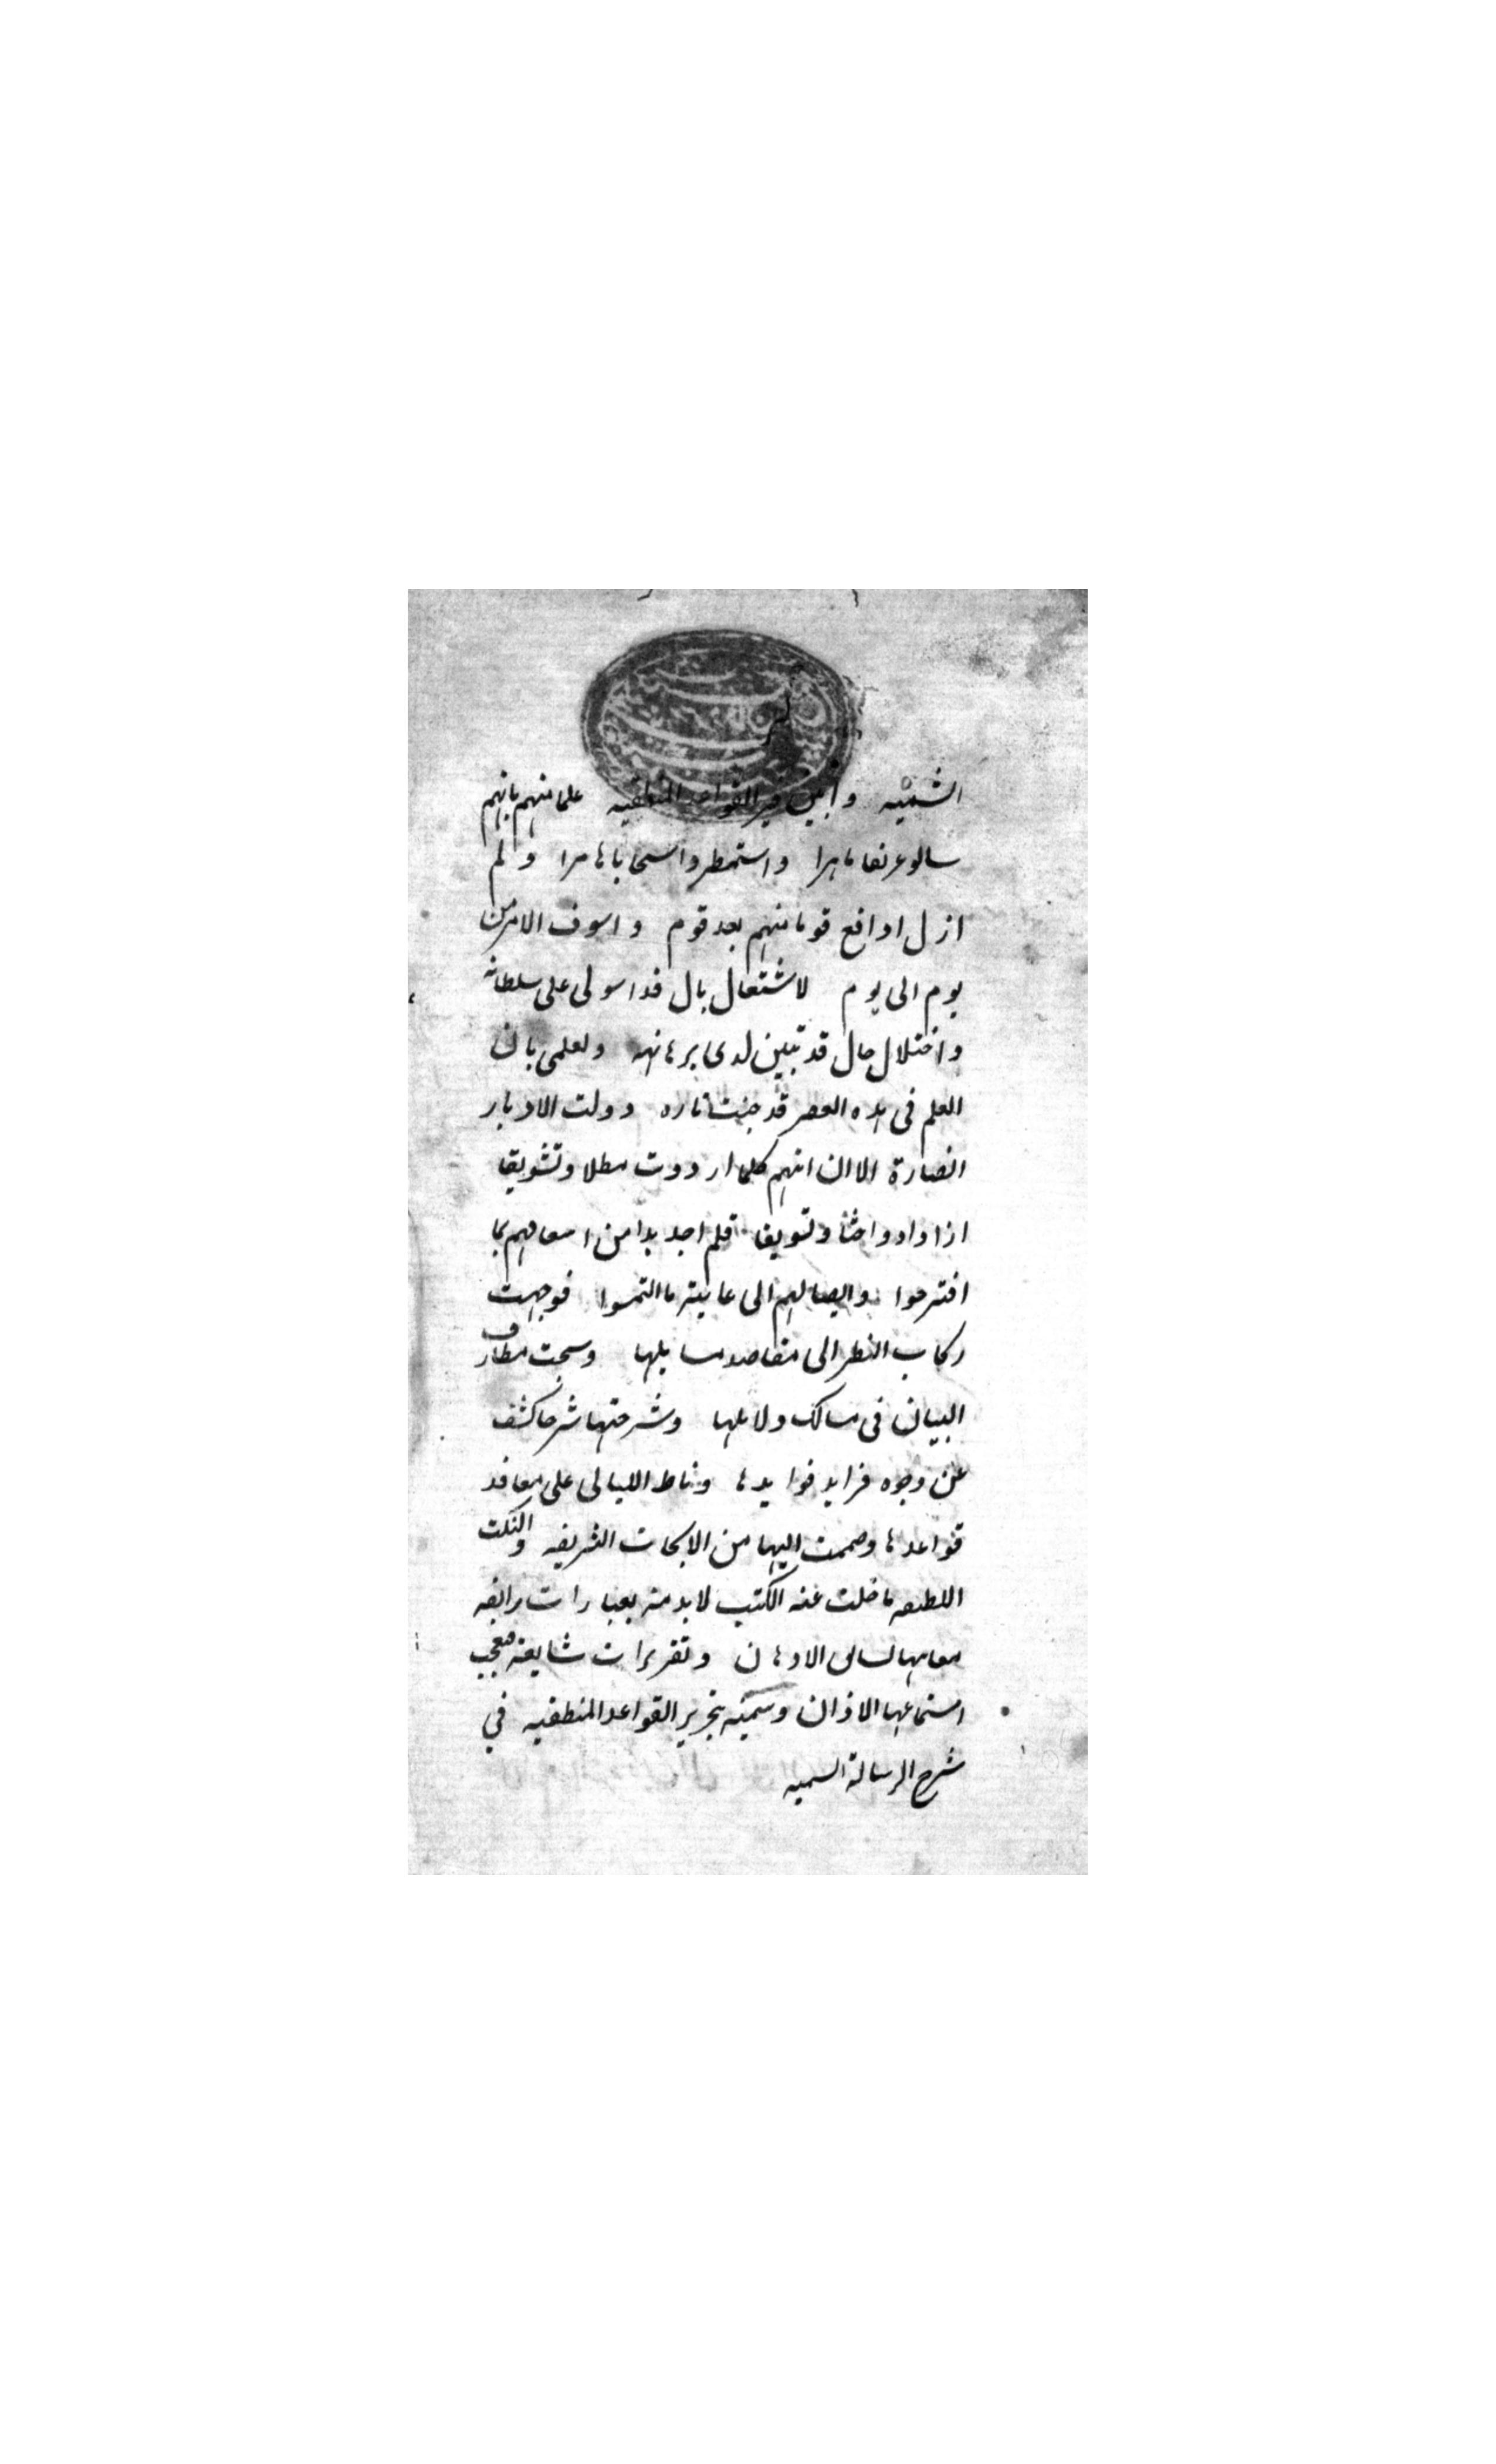 الشمسیه وأبین فیه القواعد المنطقیه علما منهم بانهم
سالو عریفا ماهرا واستمطروا سحابا هامرا ولم
ازل ادافع قوما منهم بعد قوم واسوف الامر من
یوم الی یوم لاشتعال بال قد اسولی علی سلطانه
واختلال حال قد تبین لدی برهانهه ولعلمی بان
العلم فی هذه العصر قد خبت ناره وولت الادبار
انصارة الا ان انهم کلما ازددت مطلا وتشویقا
ازدادوا حثا وتسویفا فلم اجد بدا من اسعافهم بما
اقترحوا وایصالهم الی غایة ما التمسوا فوجهت
رکاب النظر الی مقاصد مسایلها وسحبت مطارف
البیان فی مسالک دلایلها وشرحتها شرحا کشف
عن وجوه فراید فوایدها وناط اللیالی علی معاقد
قواعدها وضممت الیها من الابحاث الشریفه والنکت
اللطیفه ما خلت عنه الکتب لابد منه بعبارات رایقه
الاذهان وتقریرات شایعة معجب
استماعها الاذان وسمیته بتحریر القواعد المنطقیه في
شرح الرسالة الشمسیه